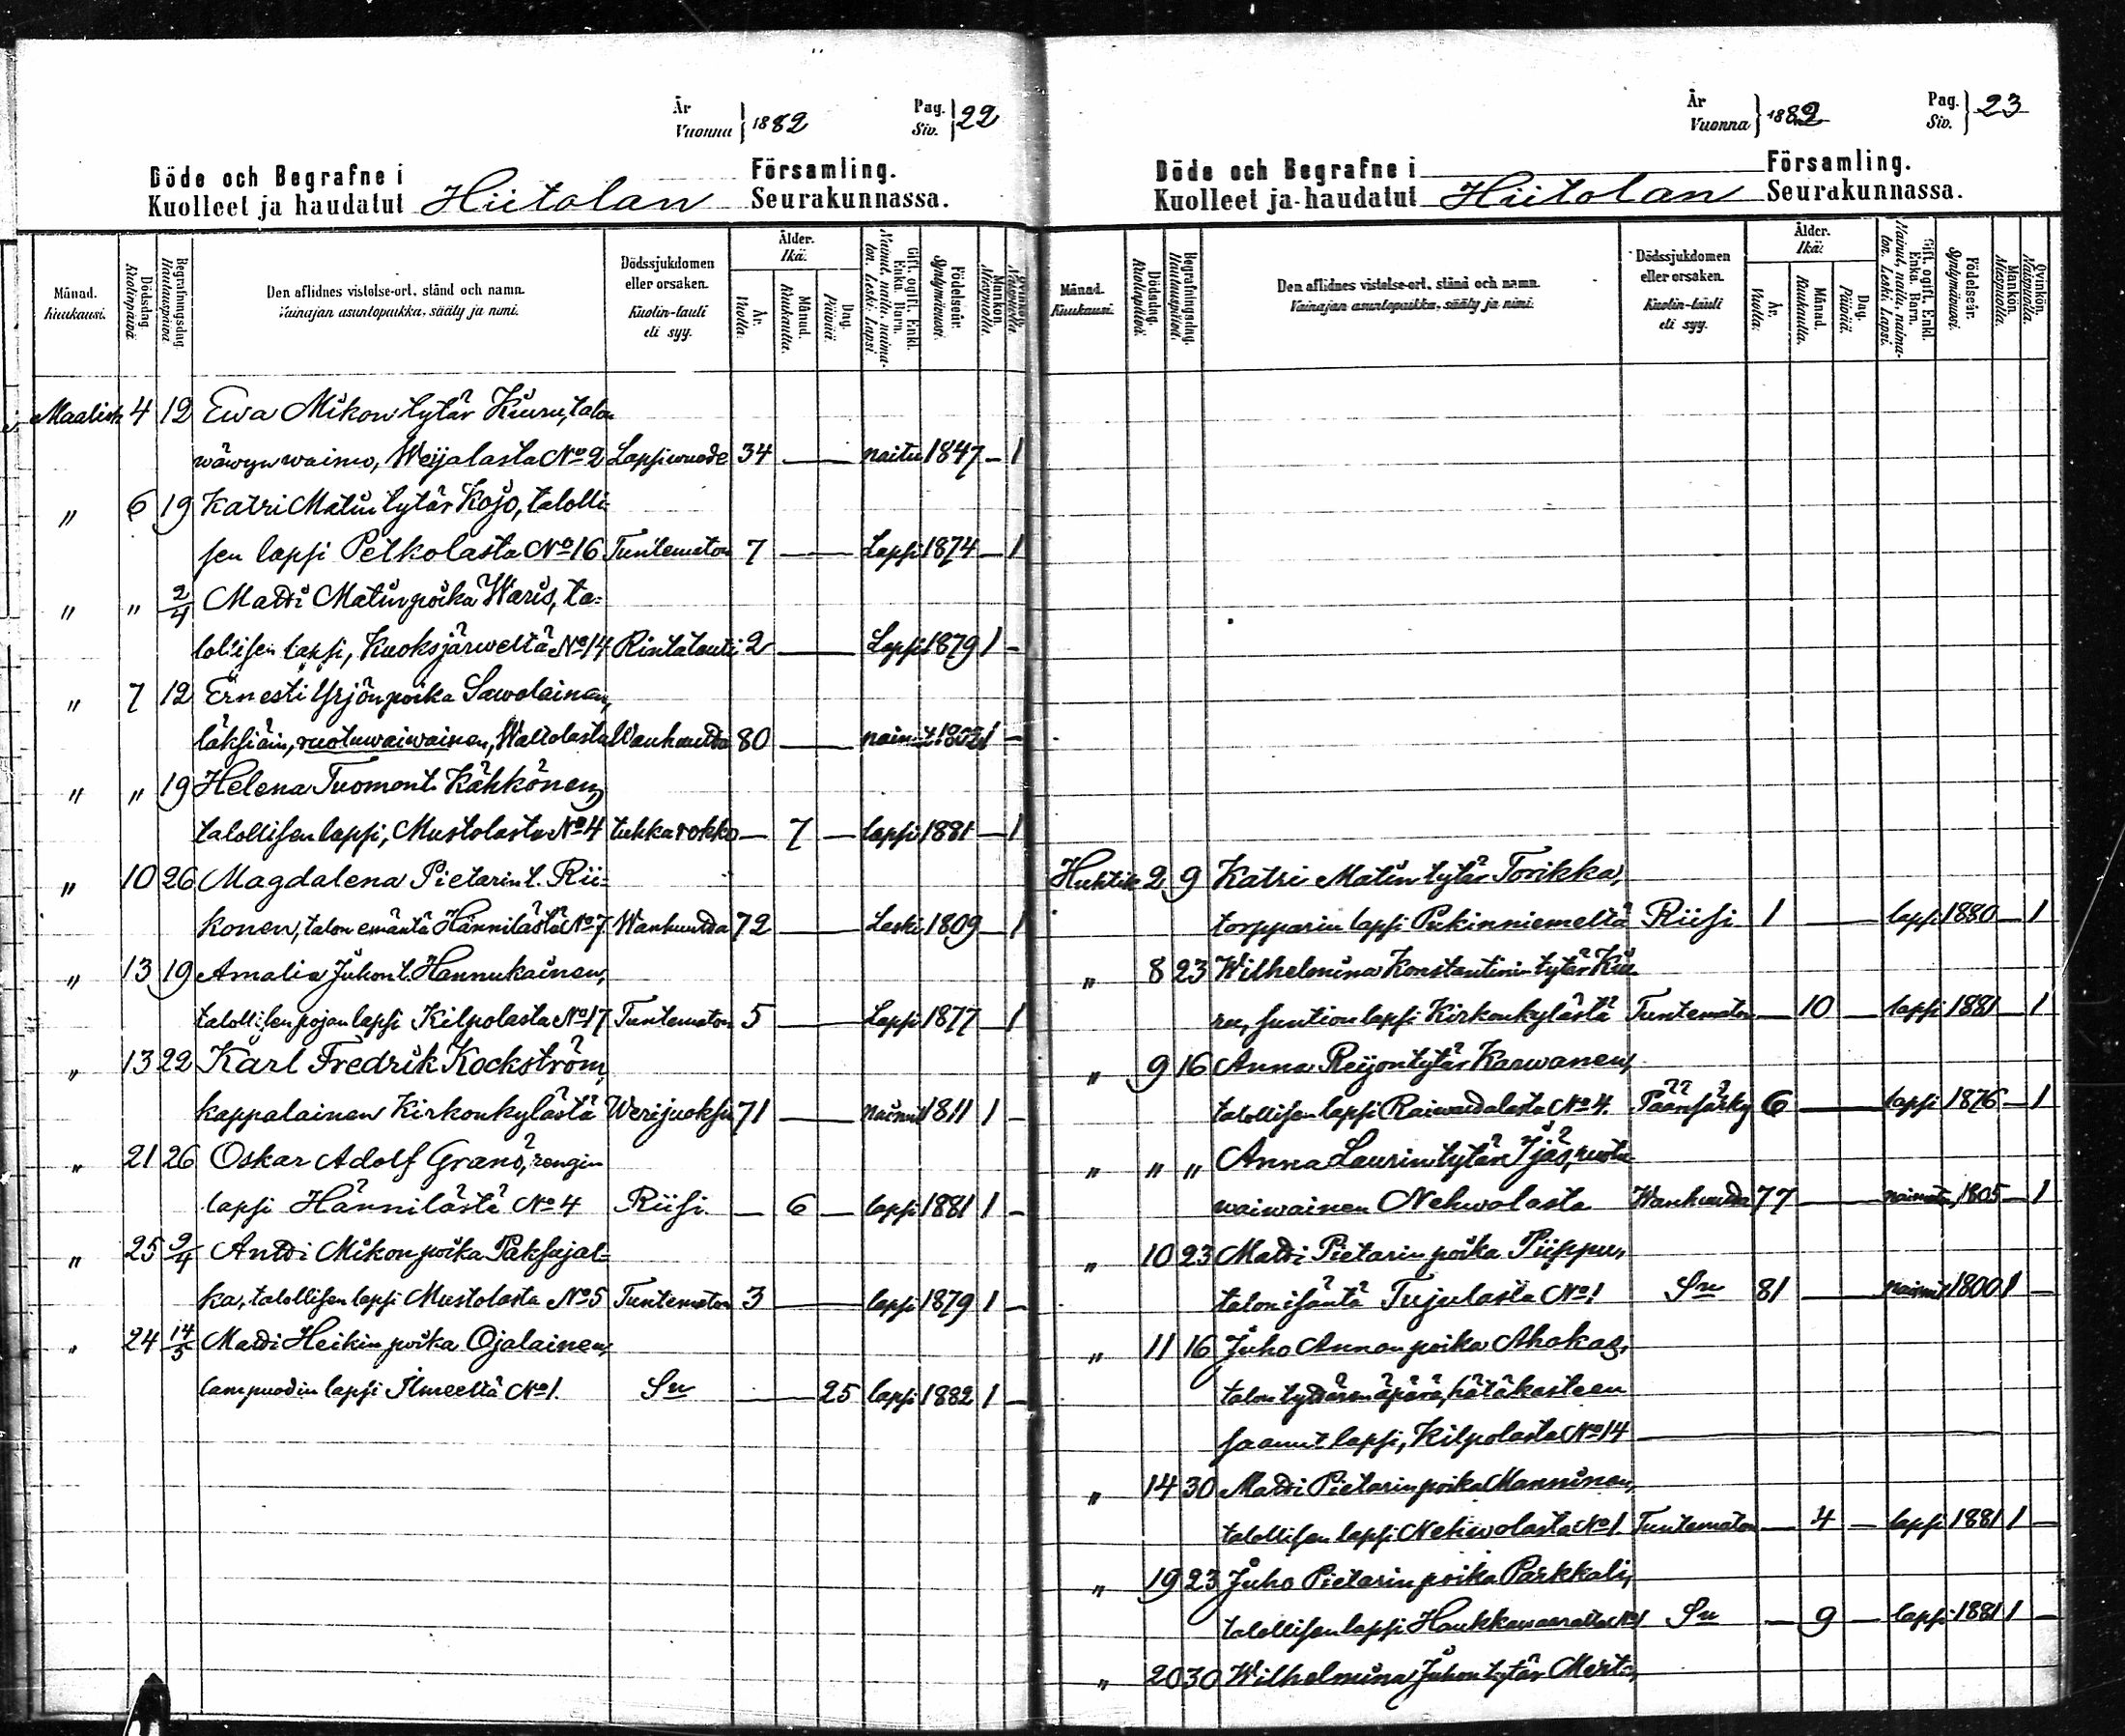 År
Vuonna 1882
Pag.
Siv. 22
Döde och Begrafne i Församling.
Kuolleet ja haudatut Hiitolan Seurakunnassa.
Månad. Kuukausi.
Dödsdag. Kuolinpäivä
Begrafningsdag. Hautauspäivä
Den aflidnes vistelse-ort, stånd och namn.
Vainajan asuntopaikka, sääty ja nimi.
Dödssjukdomen eller orsaken.
Kuolin-tauti eli syy.
Ålder. Ikä.
År. Vuotta.
Månad. Kuukautta.
Dag. Päivää.
Gift, ogift, Enkl. Enka. Barn.
Nainut, naitu, naimaton. Leski. Lapsi.
Födelseår. Syntymävuosi.
Mankön. Miespuolia.
Qvinkön. Naispuolia.
Maalisk 4 12 Ewa Mikon tytär Kiuru, talon
wäwyn waimo, Weijalasta No 2 Lapsiwuode 34 — naitu 1847 — 1
" 6 19 Katri Matin tytär Kojo, talolli-
sen lapsi Petkolasta No 16 Tuntematon 7 — Lapsi 1874 — 1
" " 2/4 Matti Matinpoika Waris, ta-
lollisen lapsi, Kuoksjärweltä No 14 Rintatauti 2 — Lapsi 1879 1 —
" 7 12 Ernesti Yrjönpoika Sawolainen,
läksiäin, ruotuwaiwainen, Waltolasta Wanhuutta 80 — nainut 1802 1 —
" " 19 Helena Tuomont. Kähkönen,
talollisen lapsi, Mustolasta No 4 tuhkarokko — 7 — lapsi 1881 — 1
" 10 26 Magdalena Pietarint. Rii-
konen, talon emäntä Hännilästä No 7 Wanhuutta 72 — Leski 1809 — 1
" 13 19 Amalia Juhont. Hannukainen,
talollisen pojan lapsi Kilpolasta No 17 Tuntematon 5 — Lapsi 1877 — 1
" 13 22 Karl Fredrik Kockström,
kappalainen Kirkonkylästä Werijuoksu 71 — nainut 1811 1 —
" 21 26 Oskar Adolf Granö, rengin
lapsi Hännilästä No 4 Riisi. — 6 — lapsi 1881 1 —
" 25 2/4 Antti Mikonpoika Paksujal-
ka, talollisen lapsi Mustolasta No 5 Tuntematon 3 — lapsi 1879 1 —
" 24 14/5 Matti Heikinpoika Ojalainen,
lampuodin lapsi Ilmeeltä No 1. Su — 25 lapsi 1882 1 —
År
Vuonna 1882
Pag.
Siv. 23
Döde och Begrafne i Församling.
Kuolleet ja haudatut Hiitolan Seurakunnassa.
Månad. Kuukausi.
Dödsdag. Kuolinpäivä.
Begrafningsdag. Hautauspäivä.
Den aflidnes vistelse-ort, stånd och namn.
Vainajan asuntopaikka, sääty ja nimi.
Dödssjukdomen eller orsaken.
Kuolin-tauti eli syy.
Ålder. Ikä.
År. Vuotta.
Månad. Kuukautta.
Dag. Päivää.
Gift, ogift, Enkl. Enka. Barn.
Nainut, naitu, naimaton. Leski. Lapsi.
Födelseår. Syntymävuosi.
Mankön. Miespuolia.
Qvinkön. Naispuolia.
Huhtik 2 9 Katri Matin tytär Torikka,
torpparin lapsi Pukinniemeltä Riisi 1 — lapsi 1880 — 1
" 8 23 Wilhelmina Konstantinin tytär Kiu
ru, suntion lapsi Kirkonkylästä Tuntematon — 10 — lapsi 1881 — 1
" 9 16 Anna Reijontytär Karwanen,
talollisen lapsi Raiwattalasta No 4. Päänsärky 6 — lapsi 1876 — 1
" " " Anna Laurintytär Ijäs, ruotu
waiwainen Nehwolasta Wanhuutta 77 — naimaton 1805 — 1
" 10 23 Matti Pietarinpoika Piippu,
talon isäntä Tujulasta No 1 Su 81 — nainut 1800 1 —
" 11 16 Juho Annanpoika Ahokas,
talon tyttären äpärä, hätäkasteen
saanut lapsi, Kilpolasta No 14 —
" 14 30 Matti Pietarinpoika Manninen,
talollisen lapsi Nehwolasta No 1. Tuntematon — 4 — lapsi 1881 1 —
" 19 23 Juho Pietarinpoika Parkkali,
talollisen lapsi Haukkawaarasta No 1 Su — 9 — lapsi 1881 1 —
" 20 30 Wilhelmina Juhontytär Merto,